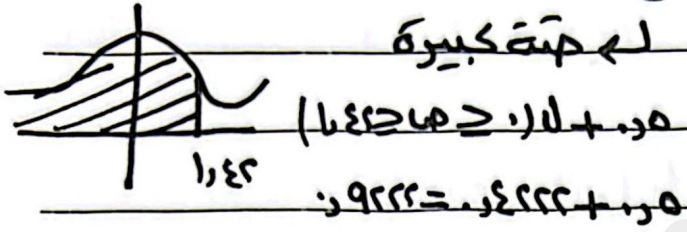 لـه جهة كبيرة
٠,٥ + ل(٠ ≤ ص ≤ ١,٤٢)
١,٤٢
٠,٥ + ٠,٤٢٢٢ = ٠,٩٢٢٢